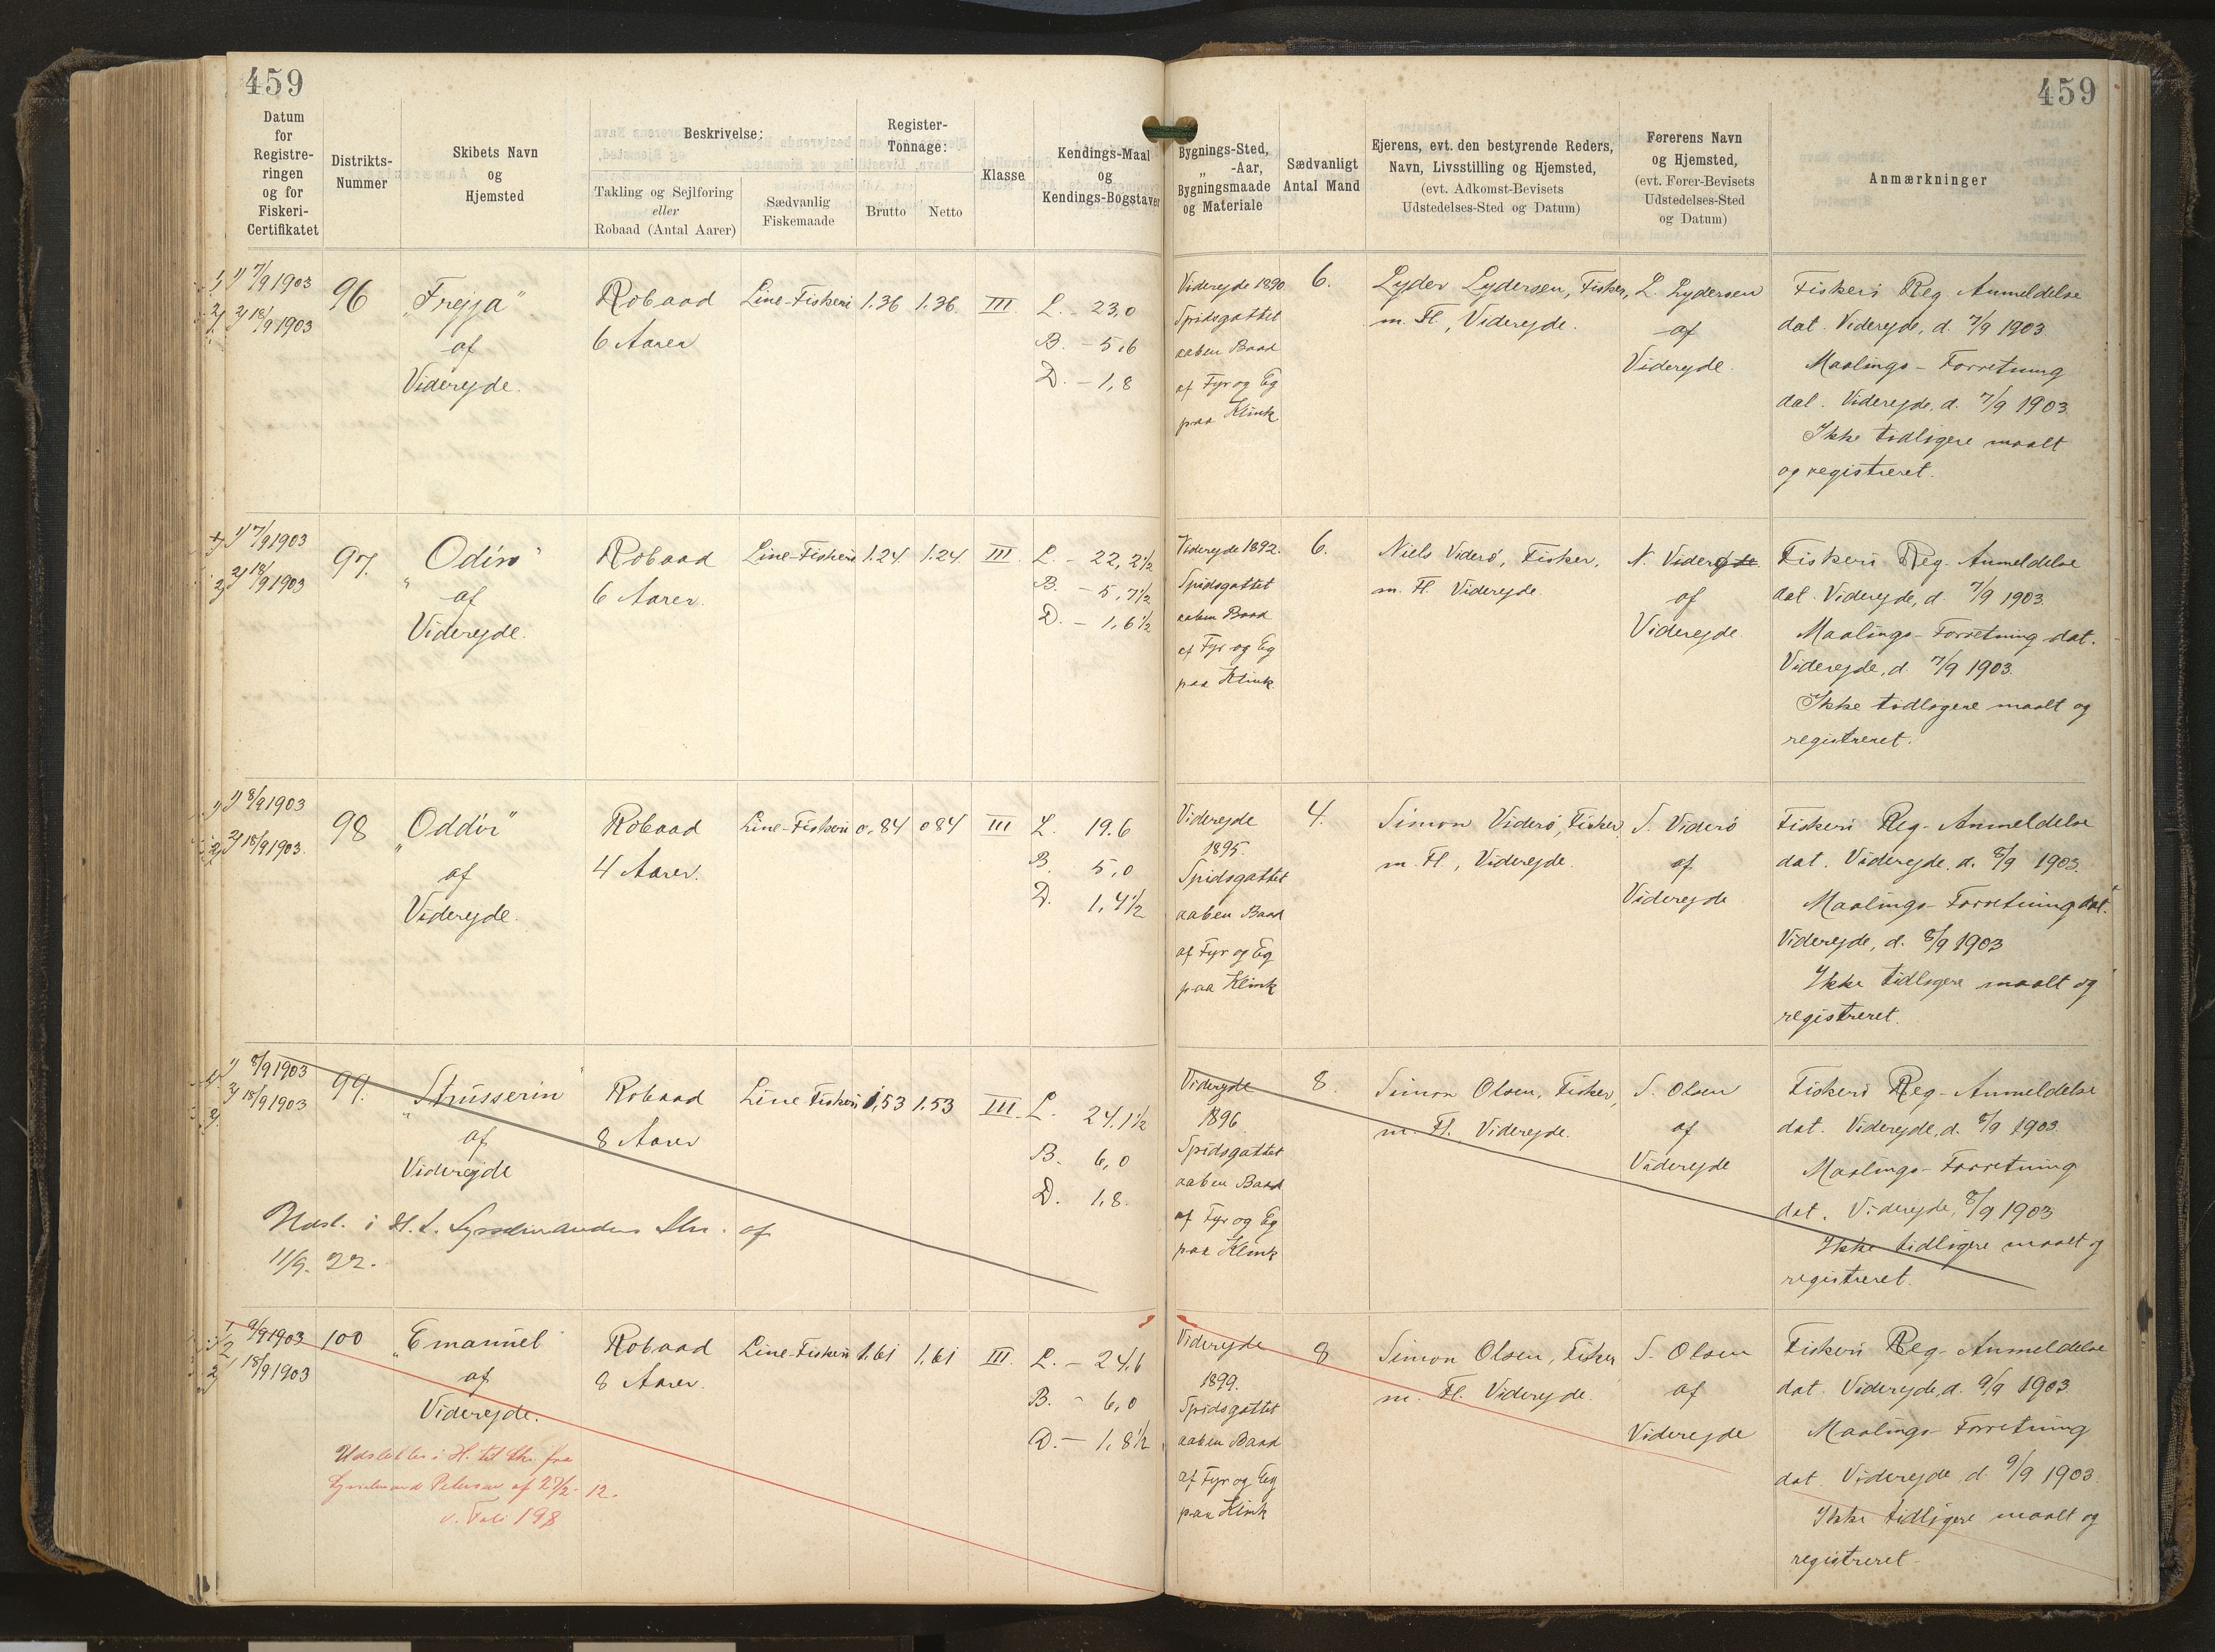 459
459
Datum
for
Registre-
ringen
og for
Fiskeri-
Certifikatet
Distrikts-
Nummer
Skibets Navn
og
Hjemsted
Beskrivelse:
Takling og Sejlføring
eller
Robaad (Antal Aarer)
Sædvanlig
Fiskemaade
Register-
Tonnage:
Brutto
Netto
Klasse
Kendings-Maal
og
Kendings-Bogstaver
Bygnings-Sted,
„ -Aar,
Bygningsmaade
og Materiale
Sædvanligt
Antal Mand
Ejerens, evt. den bestyrende Reders,
Navn, Livsstilling og Hjemsted,
(evt. Adkomst-Bevisets
Udstedelses-Sted og Datum)
Førerens Navn
og Hjemsted,
(evt. Fører-Bevisets
Udstedelses-Sted
og Datum)
Anmærkninger
1) 7/9 1903
2) 18/9 1903
96
„Frejja"
af
Viderejde.
Robaad
6 Aarer
Line-Fiskeri
1,36
1,36
III.
L. - 23,0
B. - 5,6
D. - 1,8
Viderejde 1890
Spidsgattet
aaben Baad
af Fyr og Eg
paa Klink
6.
Lyder Lydersen, Fisker,
m. Fl., Viderejde.
L. Lydersen
af
Viderejde.
Fiskeri Reg. Anmeldelse
dat. Viderejde, d. 7/9 1903.
Maalings-Forretning
dat. Viderejde, d. 7/9 1903.
Ikke tidligere maalt
og registreret.
1) 7/9 1903
2) 18/9 1903
97.
„Odin"
af
Viderejde.
Robaad
6 Aarer.
Line-Fiskeri
1.24
1.24
III
L. - 22, 2½
B. - 5, 7½
D. - 1, 6½
Viderejde 1892.
Spidsgattet
aaben Baad
af Fyr og Eg
paa Klink.
6.
Niels Viderö, Fisker,
m. Fl. Viderejde.
N. Viderejde
af
Viderejde
Fiskeri Reg-Anmeldelse
dat. Viderejde, d. 7/9 1903.
Maalings-Forretning dat.
Viderejde, d. 7/9 1903.
Ikke tidligere maalt og
registreret.
1) 8/9 1903
2) 18/9 1903.
98
„Oddür"
af
Viderejde.
Robaad
4 Aarer.
Line-Fiskeri
0,84
084
III
L. 19.6
B. 5,0
D. 1,4½
Viderejde
1895.
Spidsgattet
aaben Baad
af Fyr og Eg
paa Klink
4.
Simon Viderö, Fisker,
m. Fl., Viderejde.
S. Viderö
af
Viderejde
Fiskeri Reg-Anmeldelse
dat. Viderejde, d. 8/9 1903.
Maalings-Forretning dat.
Viderejde, d. 8/9 1903
Ikke tidligere maalt og
registreret.
1) 8/9 1903
2) 18/9 1903
99.
„Strüsserin"
af
Viderejde
Robaad
8 Aarer
Line Fiskeri
1,53
1.53
III.
L. 24.1½
B. 6,0
D. 1,8.
Udsl. i H. t. Sysselmandens Skr. af
11/9. 22.
Viderejde
1896
Spidsgattet
aaben Baad
af Fyr og Eg
paa Klink
8.
Simon Olsen, Fisker,
m. Fl. Viderejde.
S. Olsen
af
Viderejde
Fiskeri Reg-Anmeldelse
dat. Viderejde, d. 8/9 1903.
Maalings-Forretning
dat. Viderejde, 8/9 1903
Ikke tidligere maalt og
registreret.
1) 9/9 1903
2) 18/9 1903
100
„Emanüel"
af
Viderejde.
Robaad
8 Aarer.
Line-Fiskeri
1.61
1,61
III.
L. - 24,6
B. - 6,0
D. - 1,8½
Udslettes i H. til Skr. fra
Sysselmand Petersen af 27/2 - 12.
v. Foli 198
Viderejde
1899.
Spidsgattet
aaben Baad
af Fyr og Eg
paa Klink
8
Simon Olsen, Fisker
m. Fl. Viderejde.
S. Olsen
af
Viderejde
Fiskeri Reg-Anmeldelse
dat. Viderejde, d. 9/9 1903.
Maalings-Forretning
dat. Viderejde d. 9/9 1903.
Ikke tidligere maalt og
registreret.